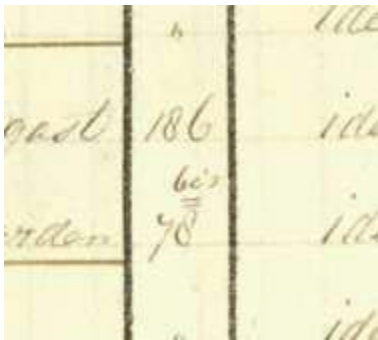 " ide
gast 186 ide
bis
rden 78 ide
" ide